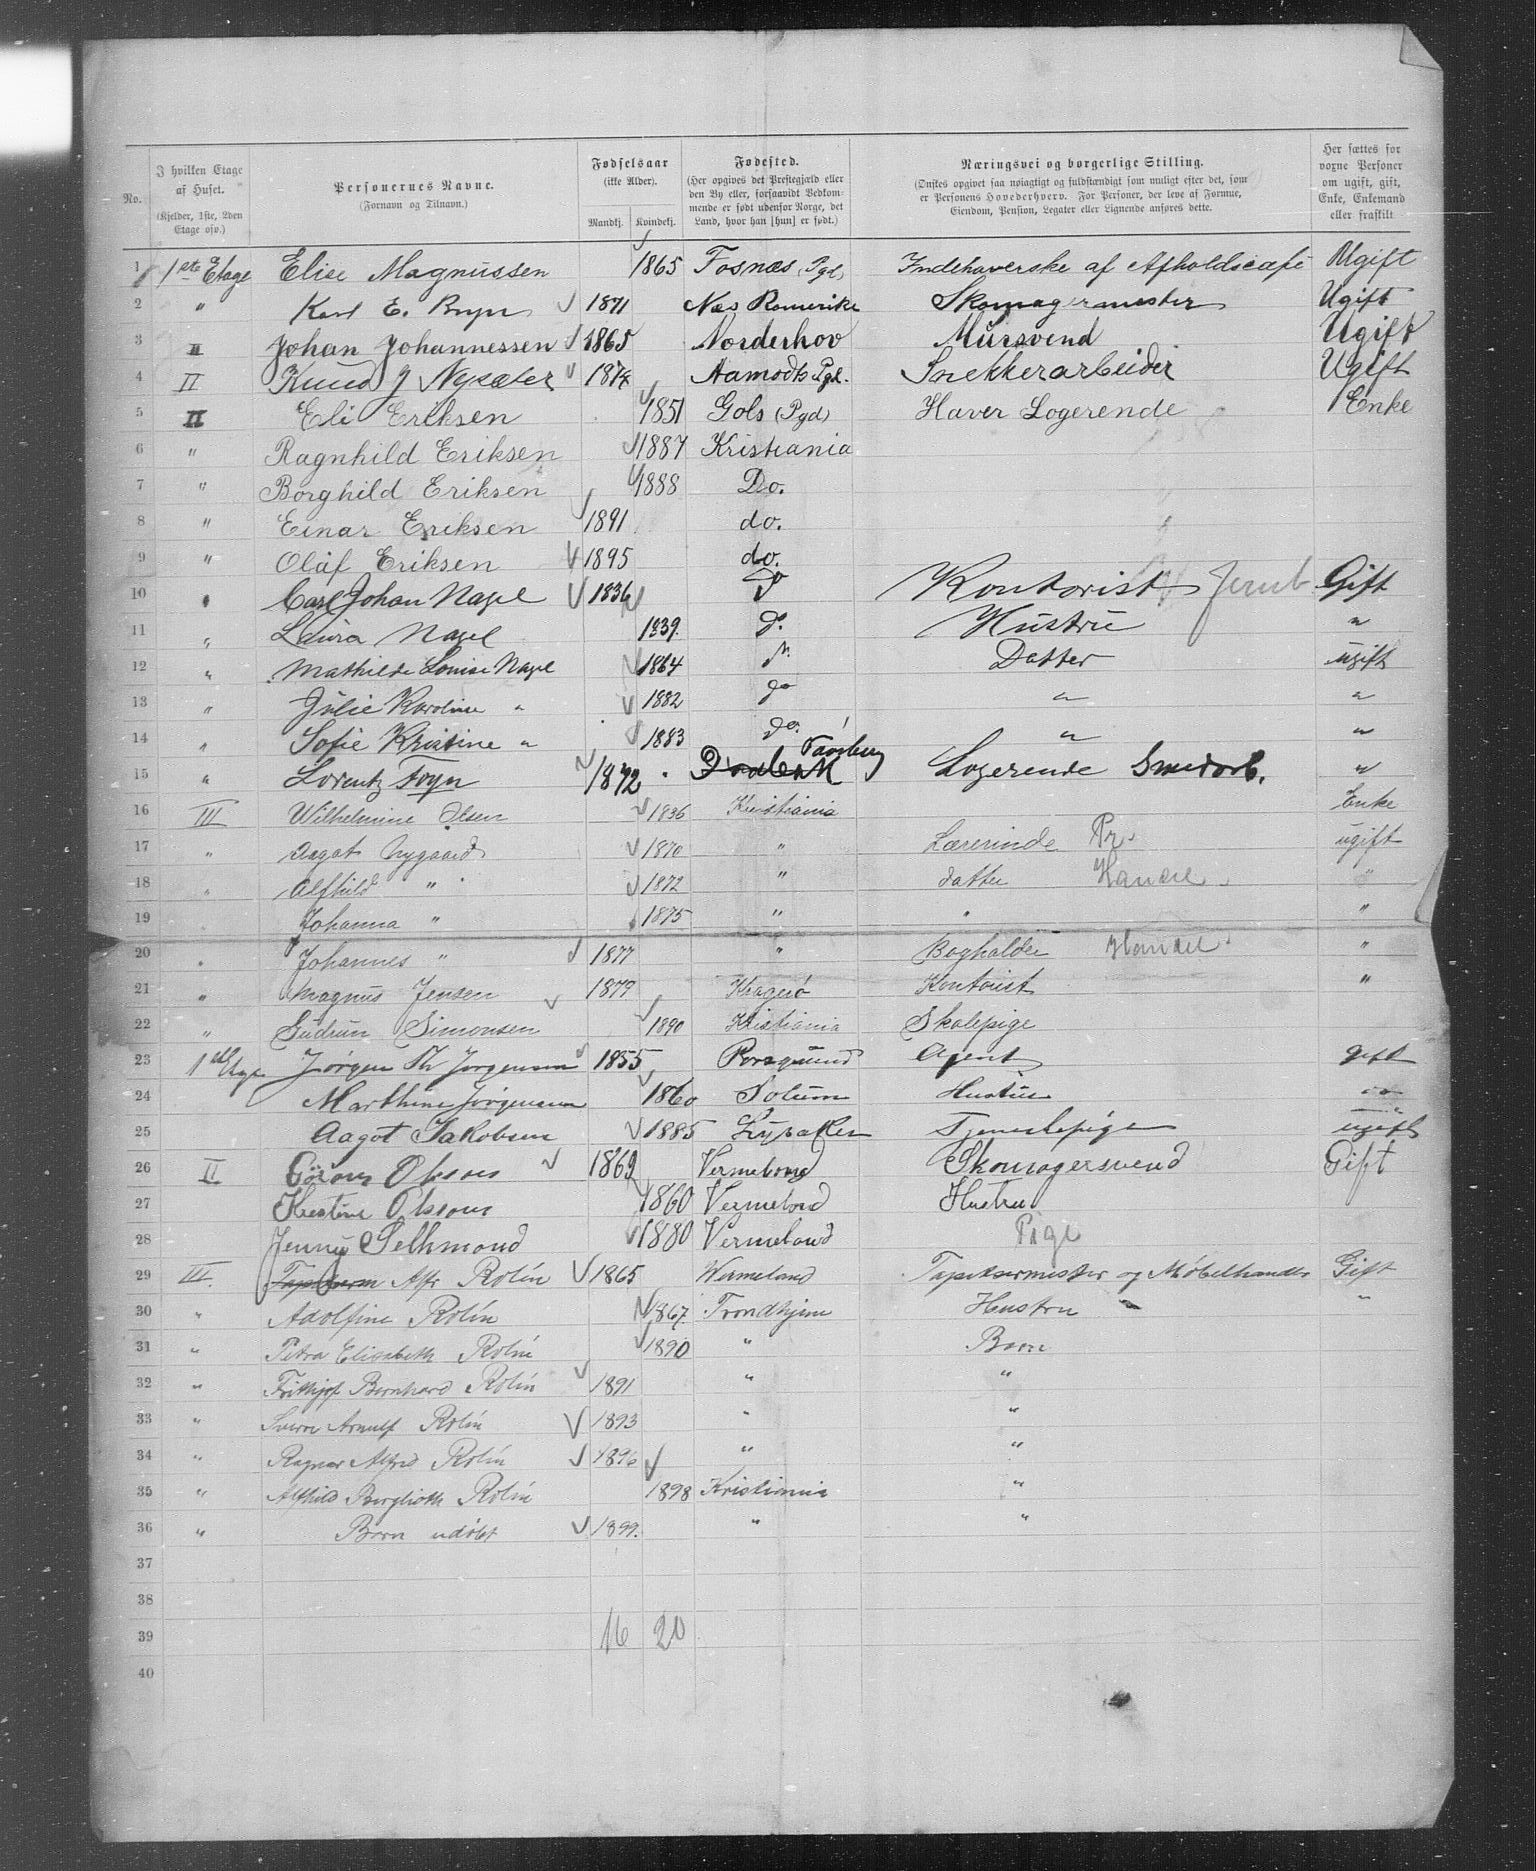 No. | I hvilken Etage af Huset. (Kjelder, 1ste, 2den Etage osv.) | Personernes Navne. (Fornavn og Tilnavn.) | Fødselsaar (ikke Alder). Mandkj. | Kvindekj. | Fødested. (Her opgives det Prestegjæld eller den By eller, forsaavidt Vedkommende er født udenfor Norge, det Land, hvor han [hun] er født.) | Næringsvei og borgerlige Stilling. (Ønskes opgivet saa nøiagtigt og fuldstændigt som muligt efter det, som er Personens Hovederhverv. For Personer, der leve af Formue, Eiendom, Pension, Legater eller Lignende anføres dette. | Her sættes for voxne Personer om ugift, gift, Enke, Enkemand eller fraskilt
1 | 1ste Etage | Elise Magnussen | 1865 | Fosnæs (Pgd) | Indehaverske af Afholdscafe | Ugift
2 | " | Karl E. Bryn | 1871 | Næs Romerike | Skomagermester | Ugift
3 | II | Johan Johannessen | 1865 | Norderhov | Mursvend | Ugift
4 | II | Knud J Nysæter | 1874 | Aamodts Pgd. | Snekkerarbeider | Ugift
5 | II | Eli Eriksen | 1851 | Gols (Pgd) | Haver Logerende | Enke
6 | " | Ragnhild Eriksen | 1887 | Kristiania
7 | " | Borghild Eriksen | 1888 | Do.
8 | " | Einar Eriksen | 1891 | do.
9 | " | Olaf Eriksen | 1895 | do.
10 | " | Carl Johan Nagel | 1836 | do | Kontorist Jernb | Gift
11 | " | Laura Nagel | 1839. | do. | Hustru | "
12 | " | Mathilde Louise Nagel | 1864 | do. | Datter | ugift
13 | " | Julie Karoline " | 1882 | do | " | "
14 | " | Sofie Kristine " | 1883 | do. | " | "
15 | " | Lorentz Foyn | 1872 | Faaberg | Logerende Smedarb. | "
16 | III | Wilhelmine Olsen | 1836 | Kristiania | | Enke
17 | " | Aagot Nygaard | 1870 | " | Lærerinde Pr. | ugift
18 | " | Alfhild " | 1872 | " | datter Handel | "
19 | Johanna " | 1875 | " | " | "
20 | " | Johannes " | 1877 | " | Bogholder Handel | "
21 | " | Magnus Jensen | 1879 | Kragerø | Kontorist | "
22 | " | Gudrun Simonsen | 1890 | Kristiania | Skolepige
23 | 1ste Etage | Jørgen Th Jørgensen | 1855 | Porsgrund | Agent | gift
24 | Marthine Jørgensen | 1860 | Solum | Hustru | "
25 | Aagot Jakobsen | 1885 | Lysaker | Tjenestepige | ugift
26 | II | Göran Olsson | 1869 | Vermeland | Skomagersvend | Gift
27 | Kristine Olsson | 1860 | Vermeland | Hustru
28 | Jenny Selhmond | 1880 | Vermeland | Pige
29 | III. | Alfr Rolin | 1865 | Wermeland | Tapetsermester og Møbelhandler | Gift
30 | " | Adolfine Rolín | 1867. | Trondhjem | Hustru | "
31 | " | Petra Elisabeth Rolín | 1890 | " | Børn
32 | " | Frithjof Bernhard Rolín | 1891 | " | "
33 | " | Sverre Arnulf Rolín | 1893 | " | "
34 | " | Ragnar Alfred Rolín | 1896 | " | "
35 | " | Alfhild Berglioth Rolín | 1898 | Kristiania | "
36 | " | Barn udøbt | 1899. | " | "
37
38
39 | 16 | 20
40